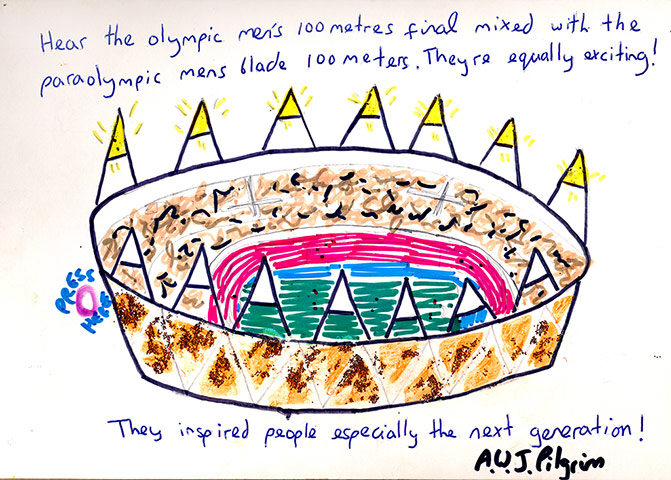 Hear the olympic men's 100 metres final mixed with the
paraolympic mens blade 100 meters. They're equally exciting!
PRESS
HERE
They inspired people especially the next generation!
A.W.J. Pilgrim